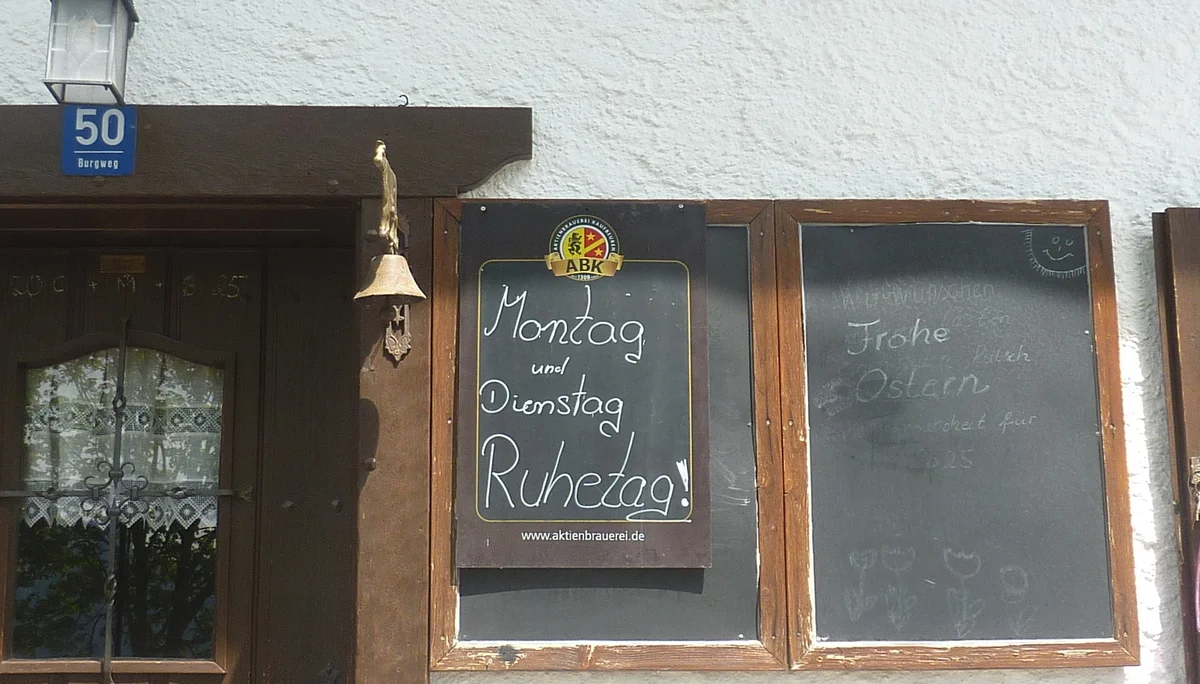 50
Burgweg
20 C + M + B 25
AKTIENBRAUEREI KAUFBEUREN
ABK
1308
Montag
und
Dienstag
Ruhetag!
www.aktienbrauerei.de
Wir wünschen
Frohe
Rutsch
Ostern
für
2025